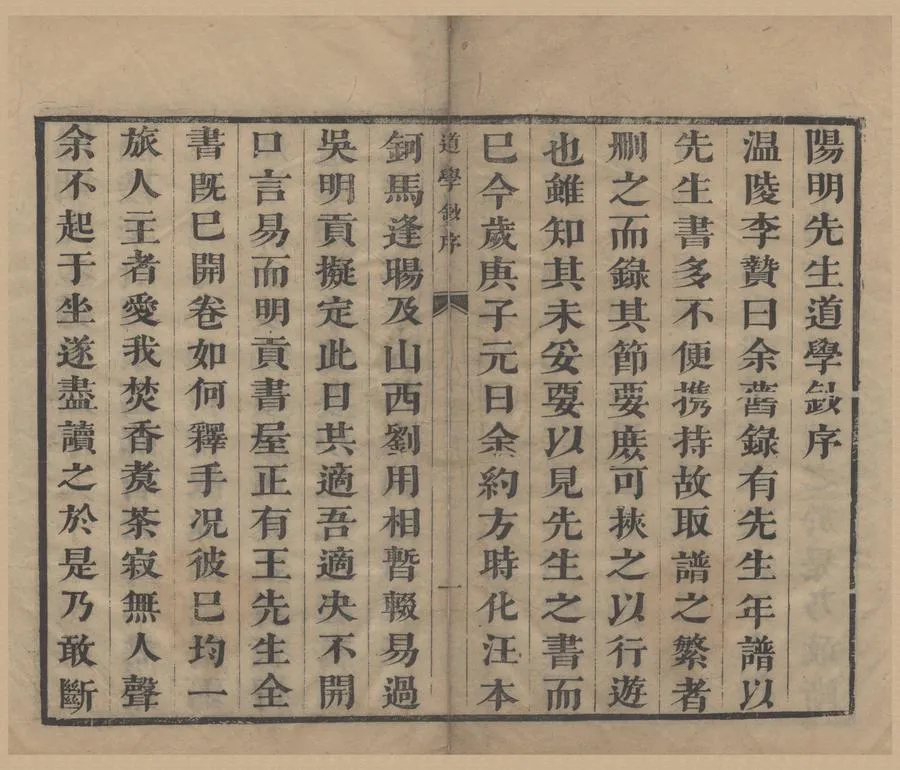 陽明先生道學鈔序
温陵李贄曰余舊錄有先生年譜以
先生書多不便携持故取譜之繁者
刪之而錄其節要庻可挾之以行遊
也雖知其未妥要以見先生之書而
巳今歲庚子元日余約方時化汪本
道學鈔序
一
鈳馬逢暘及山西劉用相暫輟易過
吳明貢擬定此日共適吾適决不開
口言易而明貢書屋正有王先生全
書既巳開卷如何釋手况彼巳均一
旅人主者愛我焚香煑茶寂無人聲
余不起于坐遂盡讀之於是乃敢斷